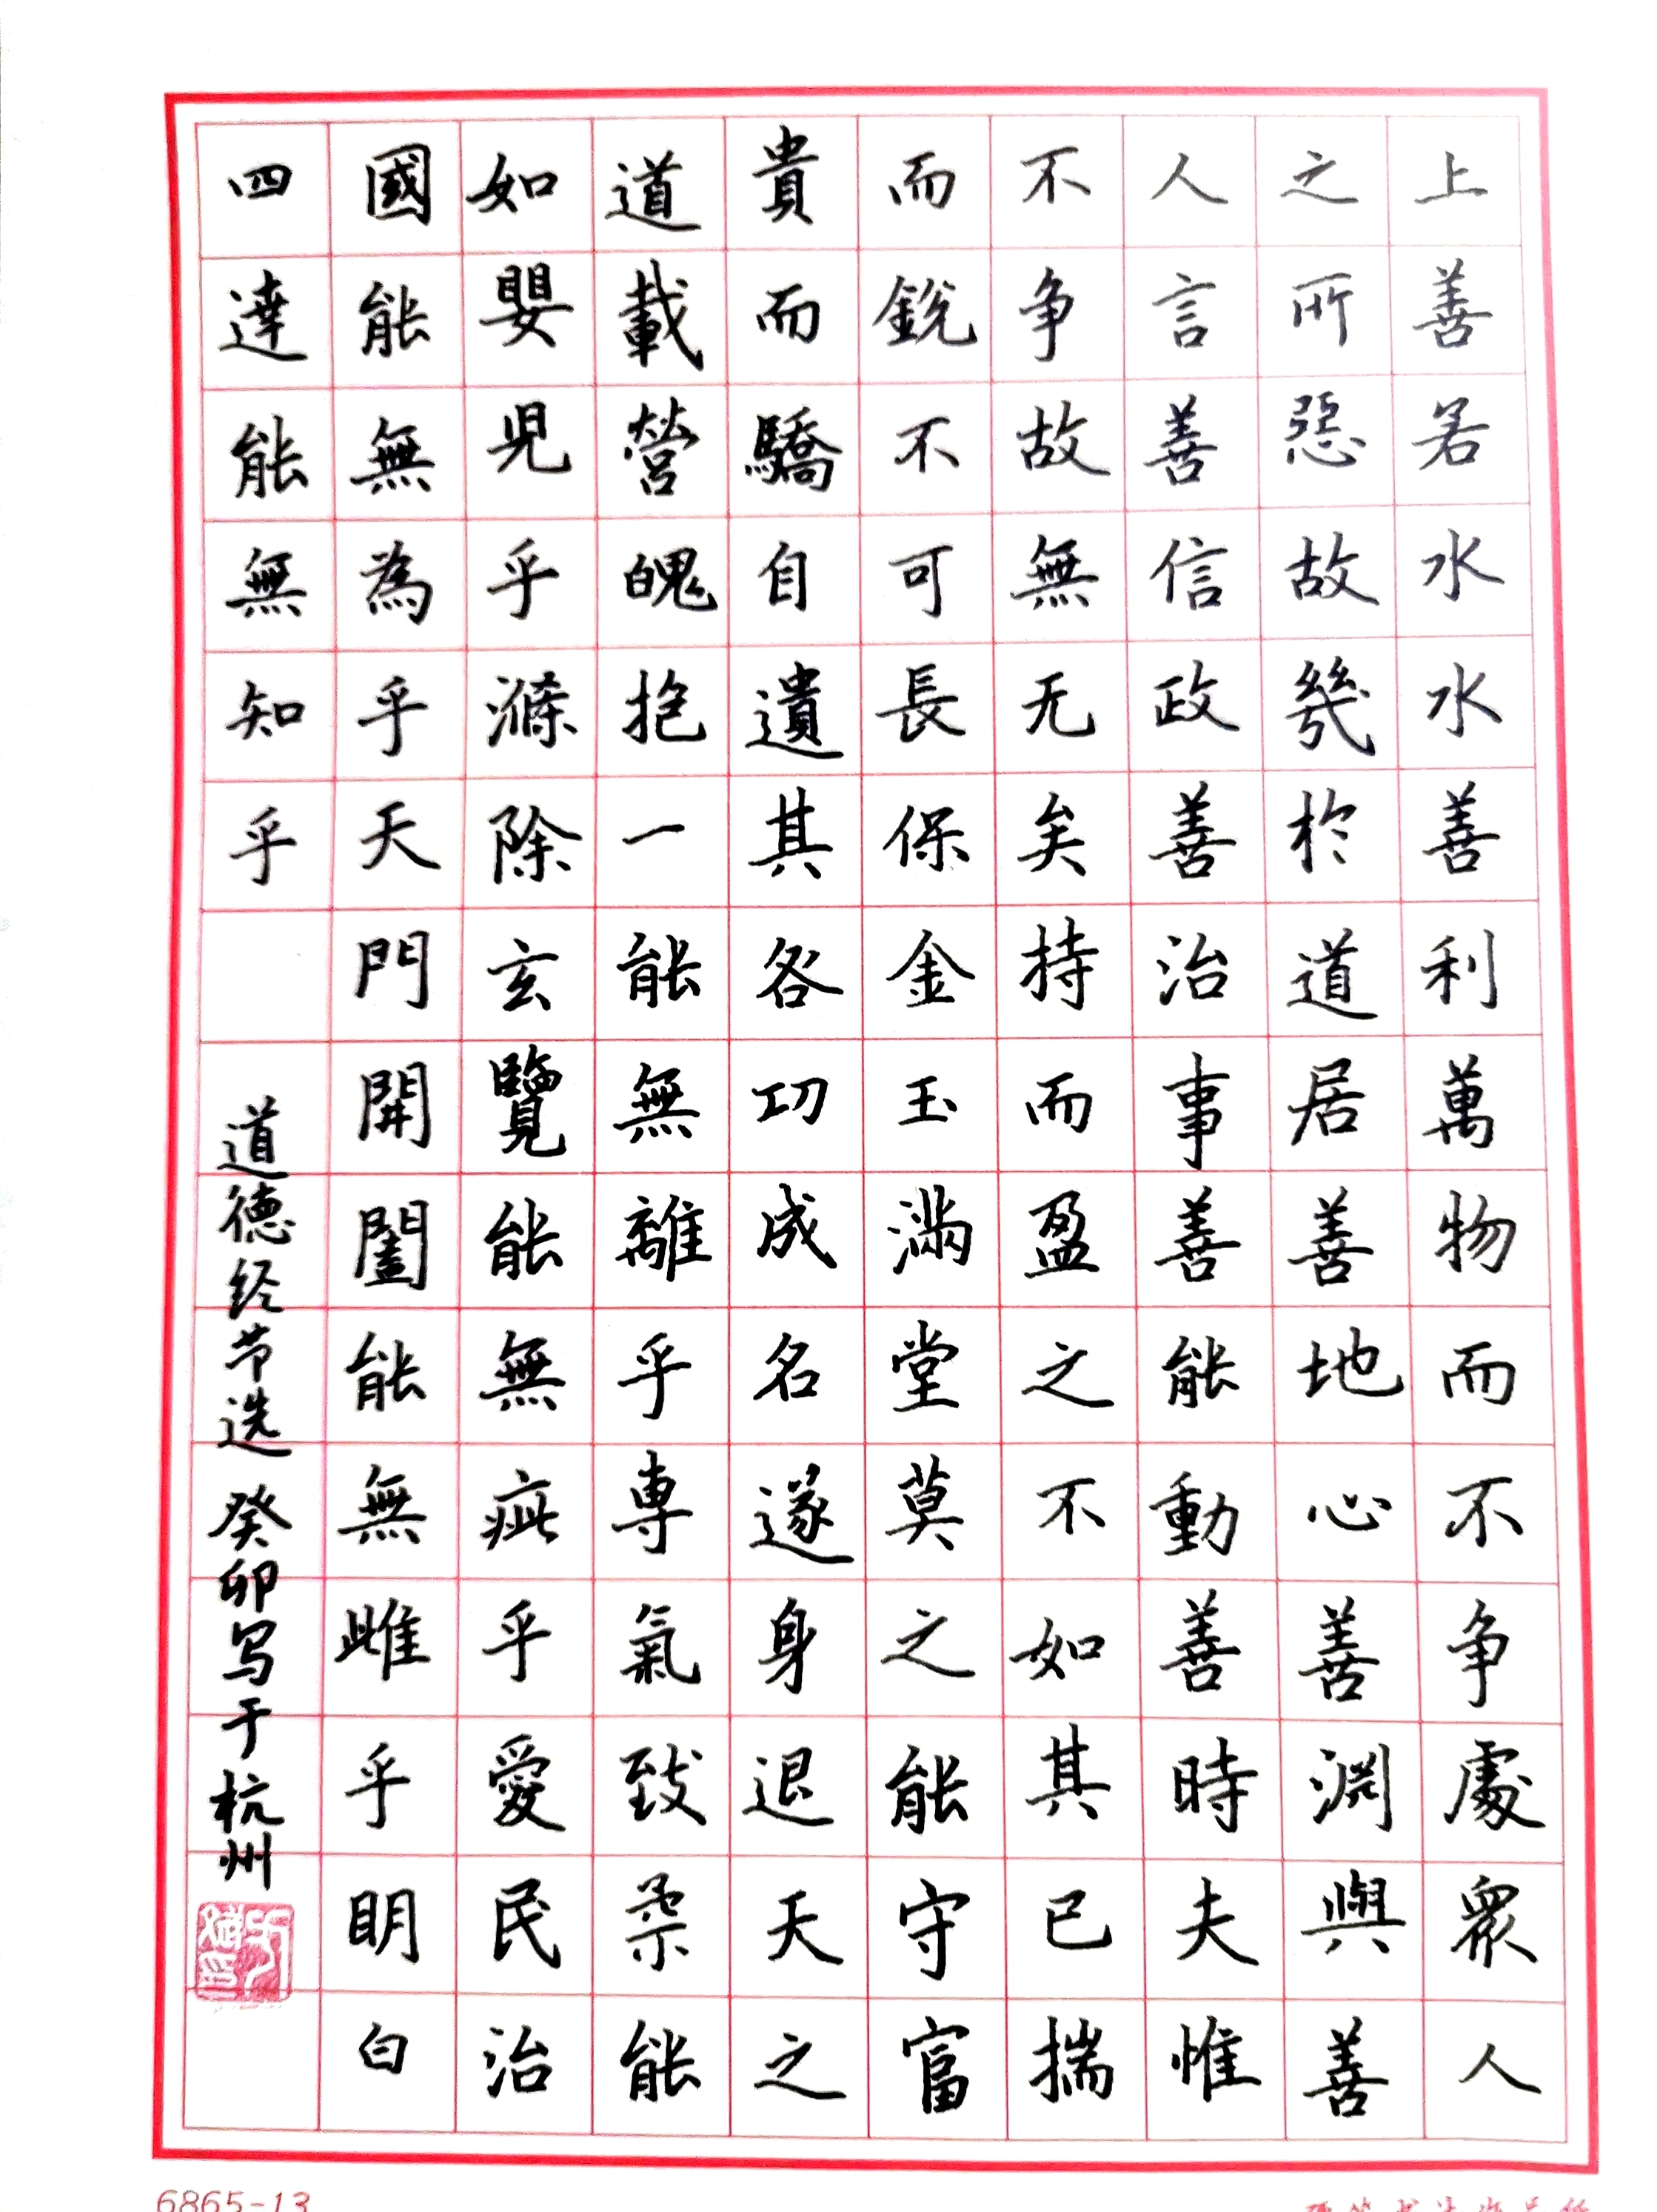 上善若水水善利萬物而不争處衆人
之所惡故幾於道居善地心善淵與善
人言善信政善治事善能動善時夫惟
不争故無尤矣持而盈之不如其已揣
而銳不可長保金玉滿堂莫之能守富
貴而驕自遺其咎功成名遂身退天之
道載營魄抱一能無離乎專氣致柔能
如嬰児乎滌除玄覽能無疵乎愛民治
國能無為乎天門開闔能無雌乎明白
四達能無知乎
道德经节选 癸卯写于杭州
6865-13